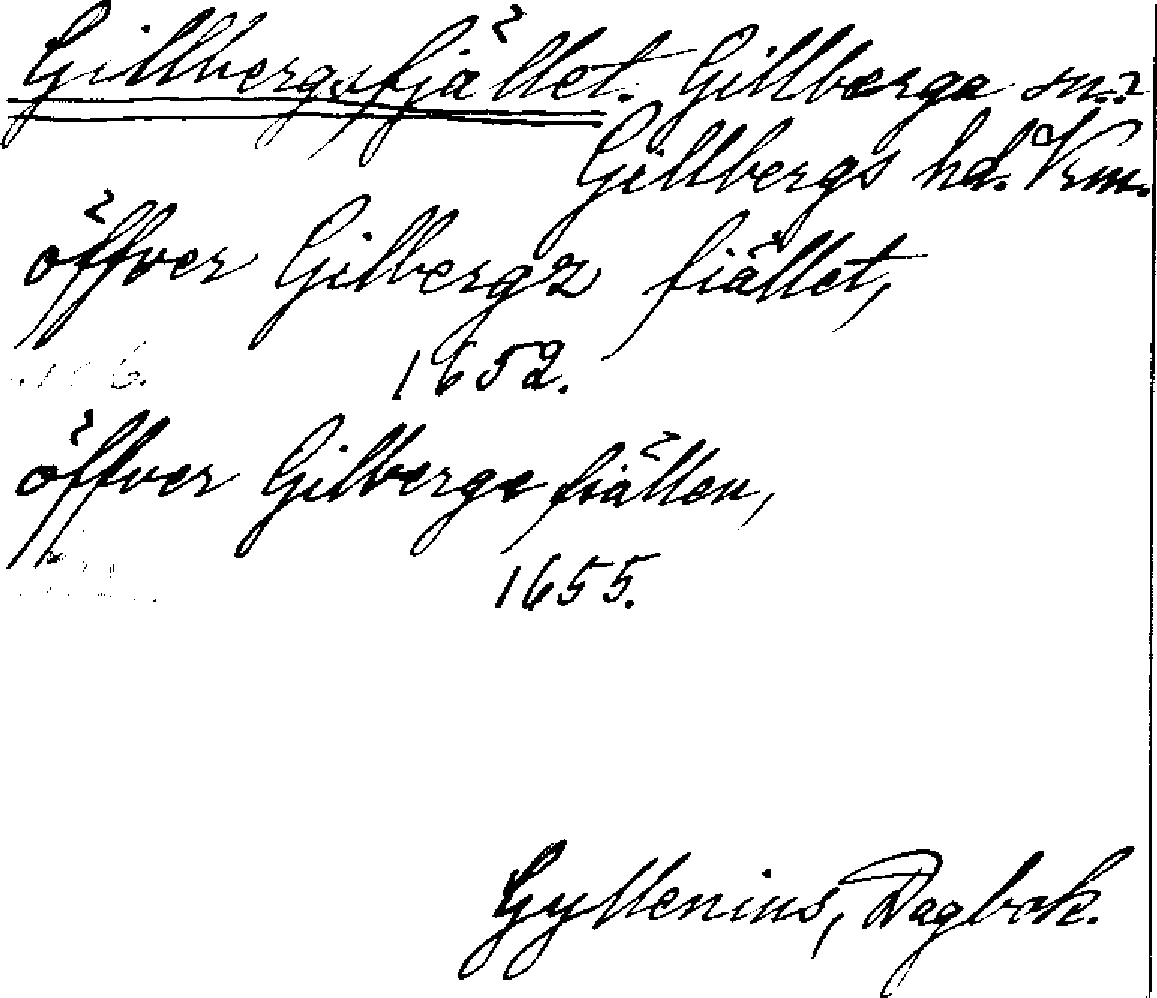 Gillbergsfjället. Gillberga sn.?
Gillbergs hd. Vrm.
öffver Gilbergz fiället,
1652.
öffver Gilberga fiällen,
1655.
Gyllenius, Dagbok.